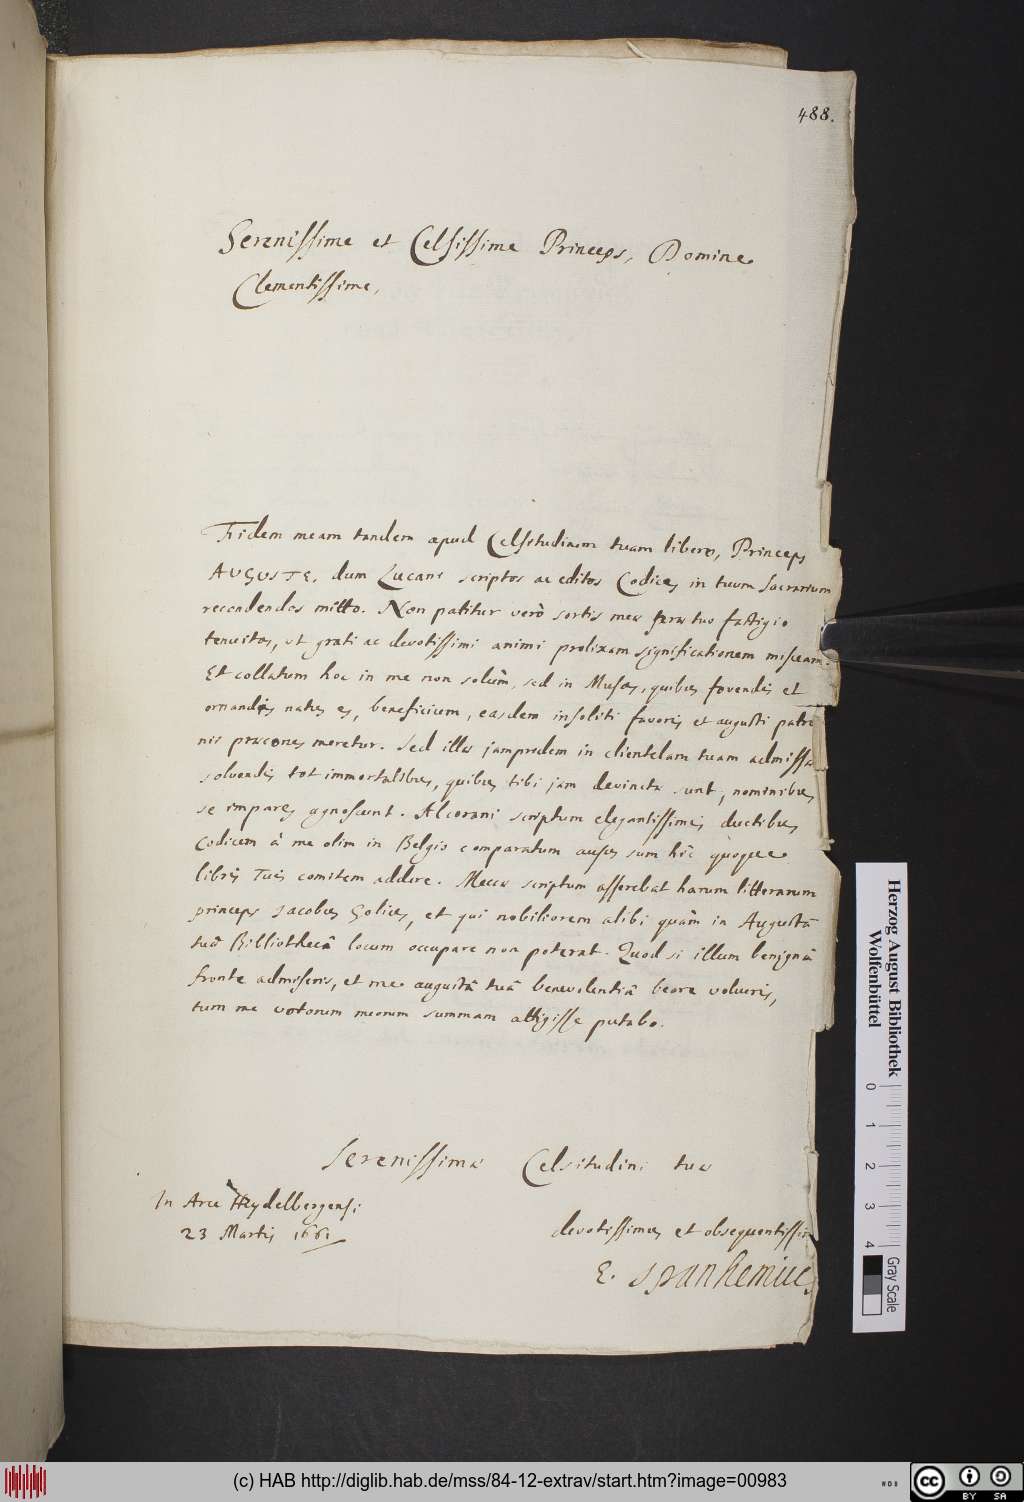 488.
Serenissime et Celsissime Princeps, Domine
Clementissime,
Fidem meam tandem apud Celsitudinem tuam libero, Princeps
AUGUSTE, dum Lucani scriptos ac editos Codices in tuum Sacrarium
recondendos mitto. Non patitur verò sortis meæ tuo fastigio
tenuitas, ut grati ac devotissimi animi prolixam significationem misceam.
Et collatum hoc in me non solùm, sed in Musas, quibus fovendis et
ornandis natus es, beneficium, easdem insoliti favoris et augusti patro
nii præcones meretur. Sed illæ jampridem in clientelam tuam admissæ
solvendis tot immortalibus, quibus tibi jam devinctæ sunt, nominibus
se impares agnoscunt. Alcorani scriptum elegantissimis ductibus
Codicem à me olim in Belgio comparatum ausus sum hîc quoque
libris Tuis comitem addere. Meccæ scriptum asserebat harum litterarum
princeps Jacobus Golius, et qui nobiliorem alibi quàm in Augustâ
tuâ Bibliothecâ locum occupare non poterat. Quod si illum benignâ
fronte admiseris, et me augustâ tuâ benevolentiâ beare volueris,
tum me votorum meorum summam attigisse putabo.
Serenissimæ Celsitudini tuæ
In Arce Heydelbergensi
23 Martis 1661
devotissimus et obsequentissim
E. Spanhemius
Herzog August Bibliothek
Wolfenbüttel
0 1 2 3 4
Gray Scale
(c) HAB http://diglib.hab.de/mss/84-12-extrav/start.htm?image=00983
cc BY SA